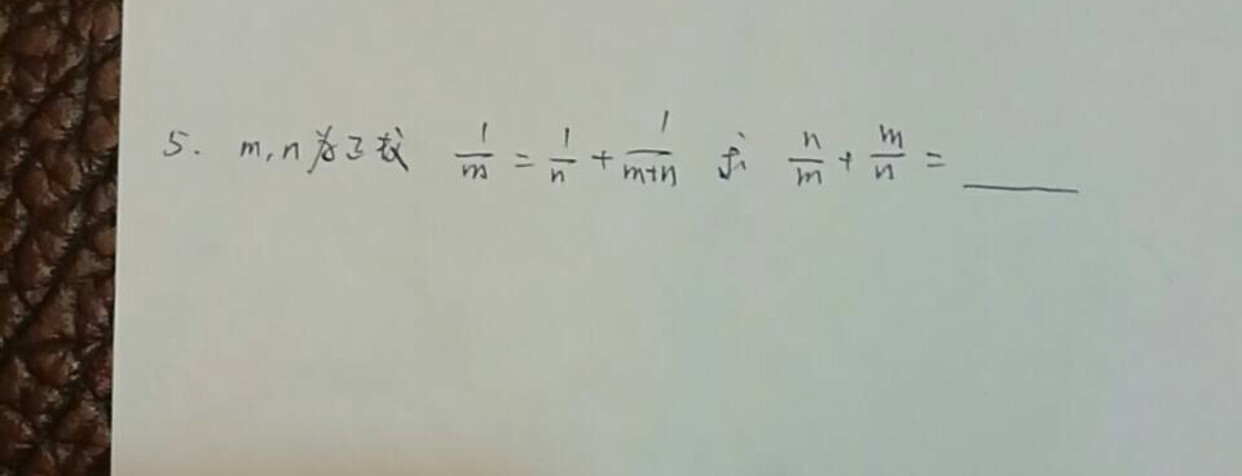 5. m,n为正数 1/m = 1/n + 1/(m+n) 求 n/m + m/n = ____